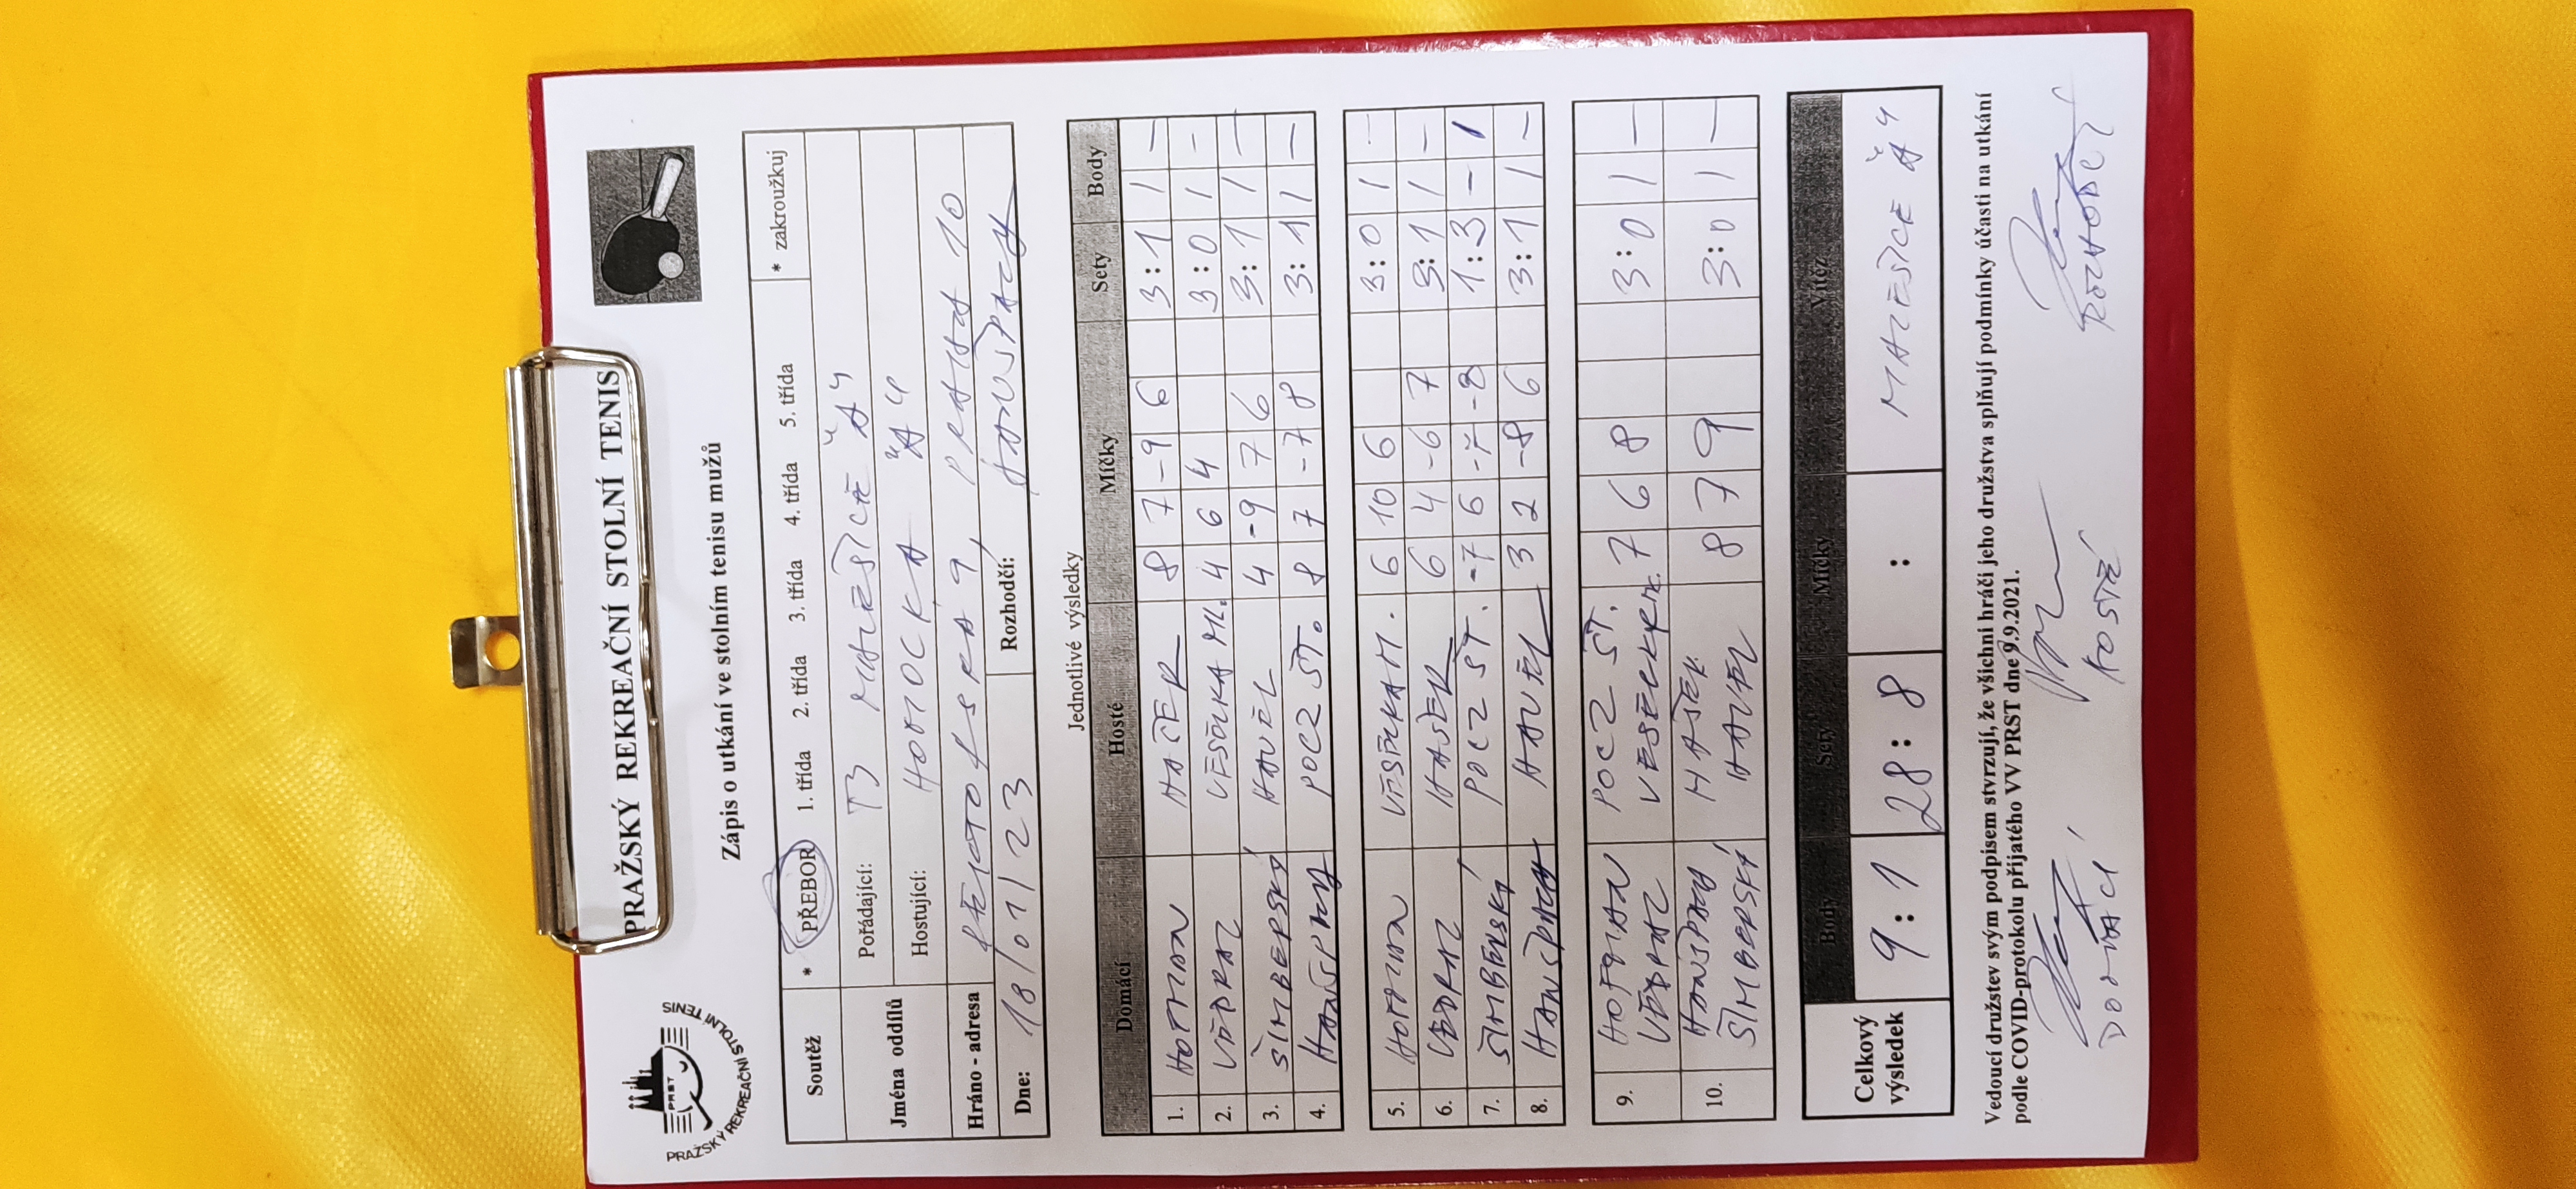 PRAŽSKÝ REKREAČNÍ STOLNÍ TENIS
PRST
PRAŽSKÝ REKREAČNÍ STOLNÍ TENIS
Zápis o utkání ve stolním tenisu mužů
Soutěž * PŘEBOR 1. třída 2. třída 3. třída 4. třída 5. třída * zakroužkuj
Jména oddílů
Pořádající: MALEŠICE "A"
Hostující: "A"
Hráno - adresa 9, PRAHA 10
Dne: 18/01/23 Rozhodčí: HANUŠPACH
Jednotlivé výsledky
Domácí Hosté Míčky Sety Body
1. HOFMAN HAŠEK 8 7 -9 6 3:1 1 -
2. VEDRAL VESELKA ML. 4 6 4 3:0 1 -
3. ŠIMBERSKÝ HAVEL 4 -9 7 6 3:1 1 -
4. HANUŠPACH POCZ ST. 8 7 -7 8 3:1 1 -
5. HOFMAN VESELKA M. 6 10 6 3:0 1 -
6. VEDRAL HAŠEK 6 4 -6 7 3:1 1 -
7. ŠIMBERSKÝ POCZ ST. -7 6 -7 -8 1:3 - 1
8. HANUŠPACH HAVEL 3 2 -8 6 3:1 1 -
9. HOFMAN POCZ ST. 7 6 8 3:0 1 -
VEDRAL VESELKA
10. HANUŠPACH HAŠEK 8 7 9 3:0 1 -
ŠIMBERSKÝ HAVEL
Body Sety Míčky Vítěz
Celkový výsledek 9:1 28:8 : MALEŠICE "A"
Vedoucí družstev svým podpisem stvrzují, že všichni hráči jeho družstva splňují podmínky účasti na utkání
podle COVID-protokolu přijatého VV PRST dne 9.9.2021.
DOMÁCÍ HOSTÉ ROZHODČÍ